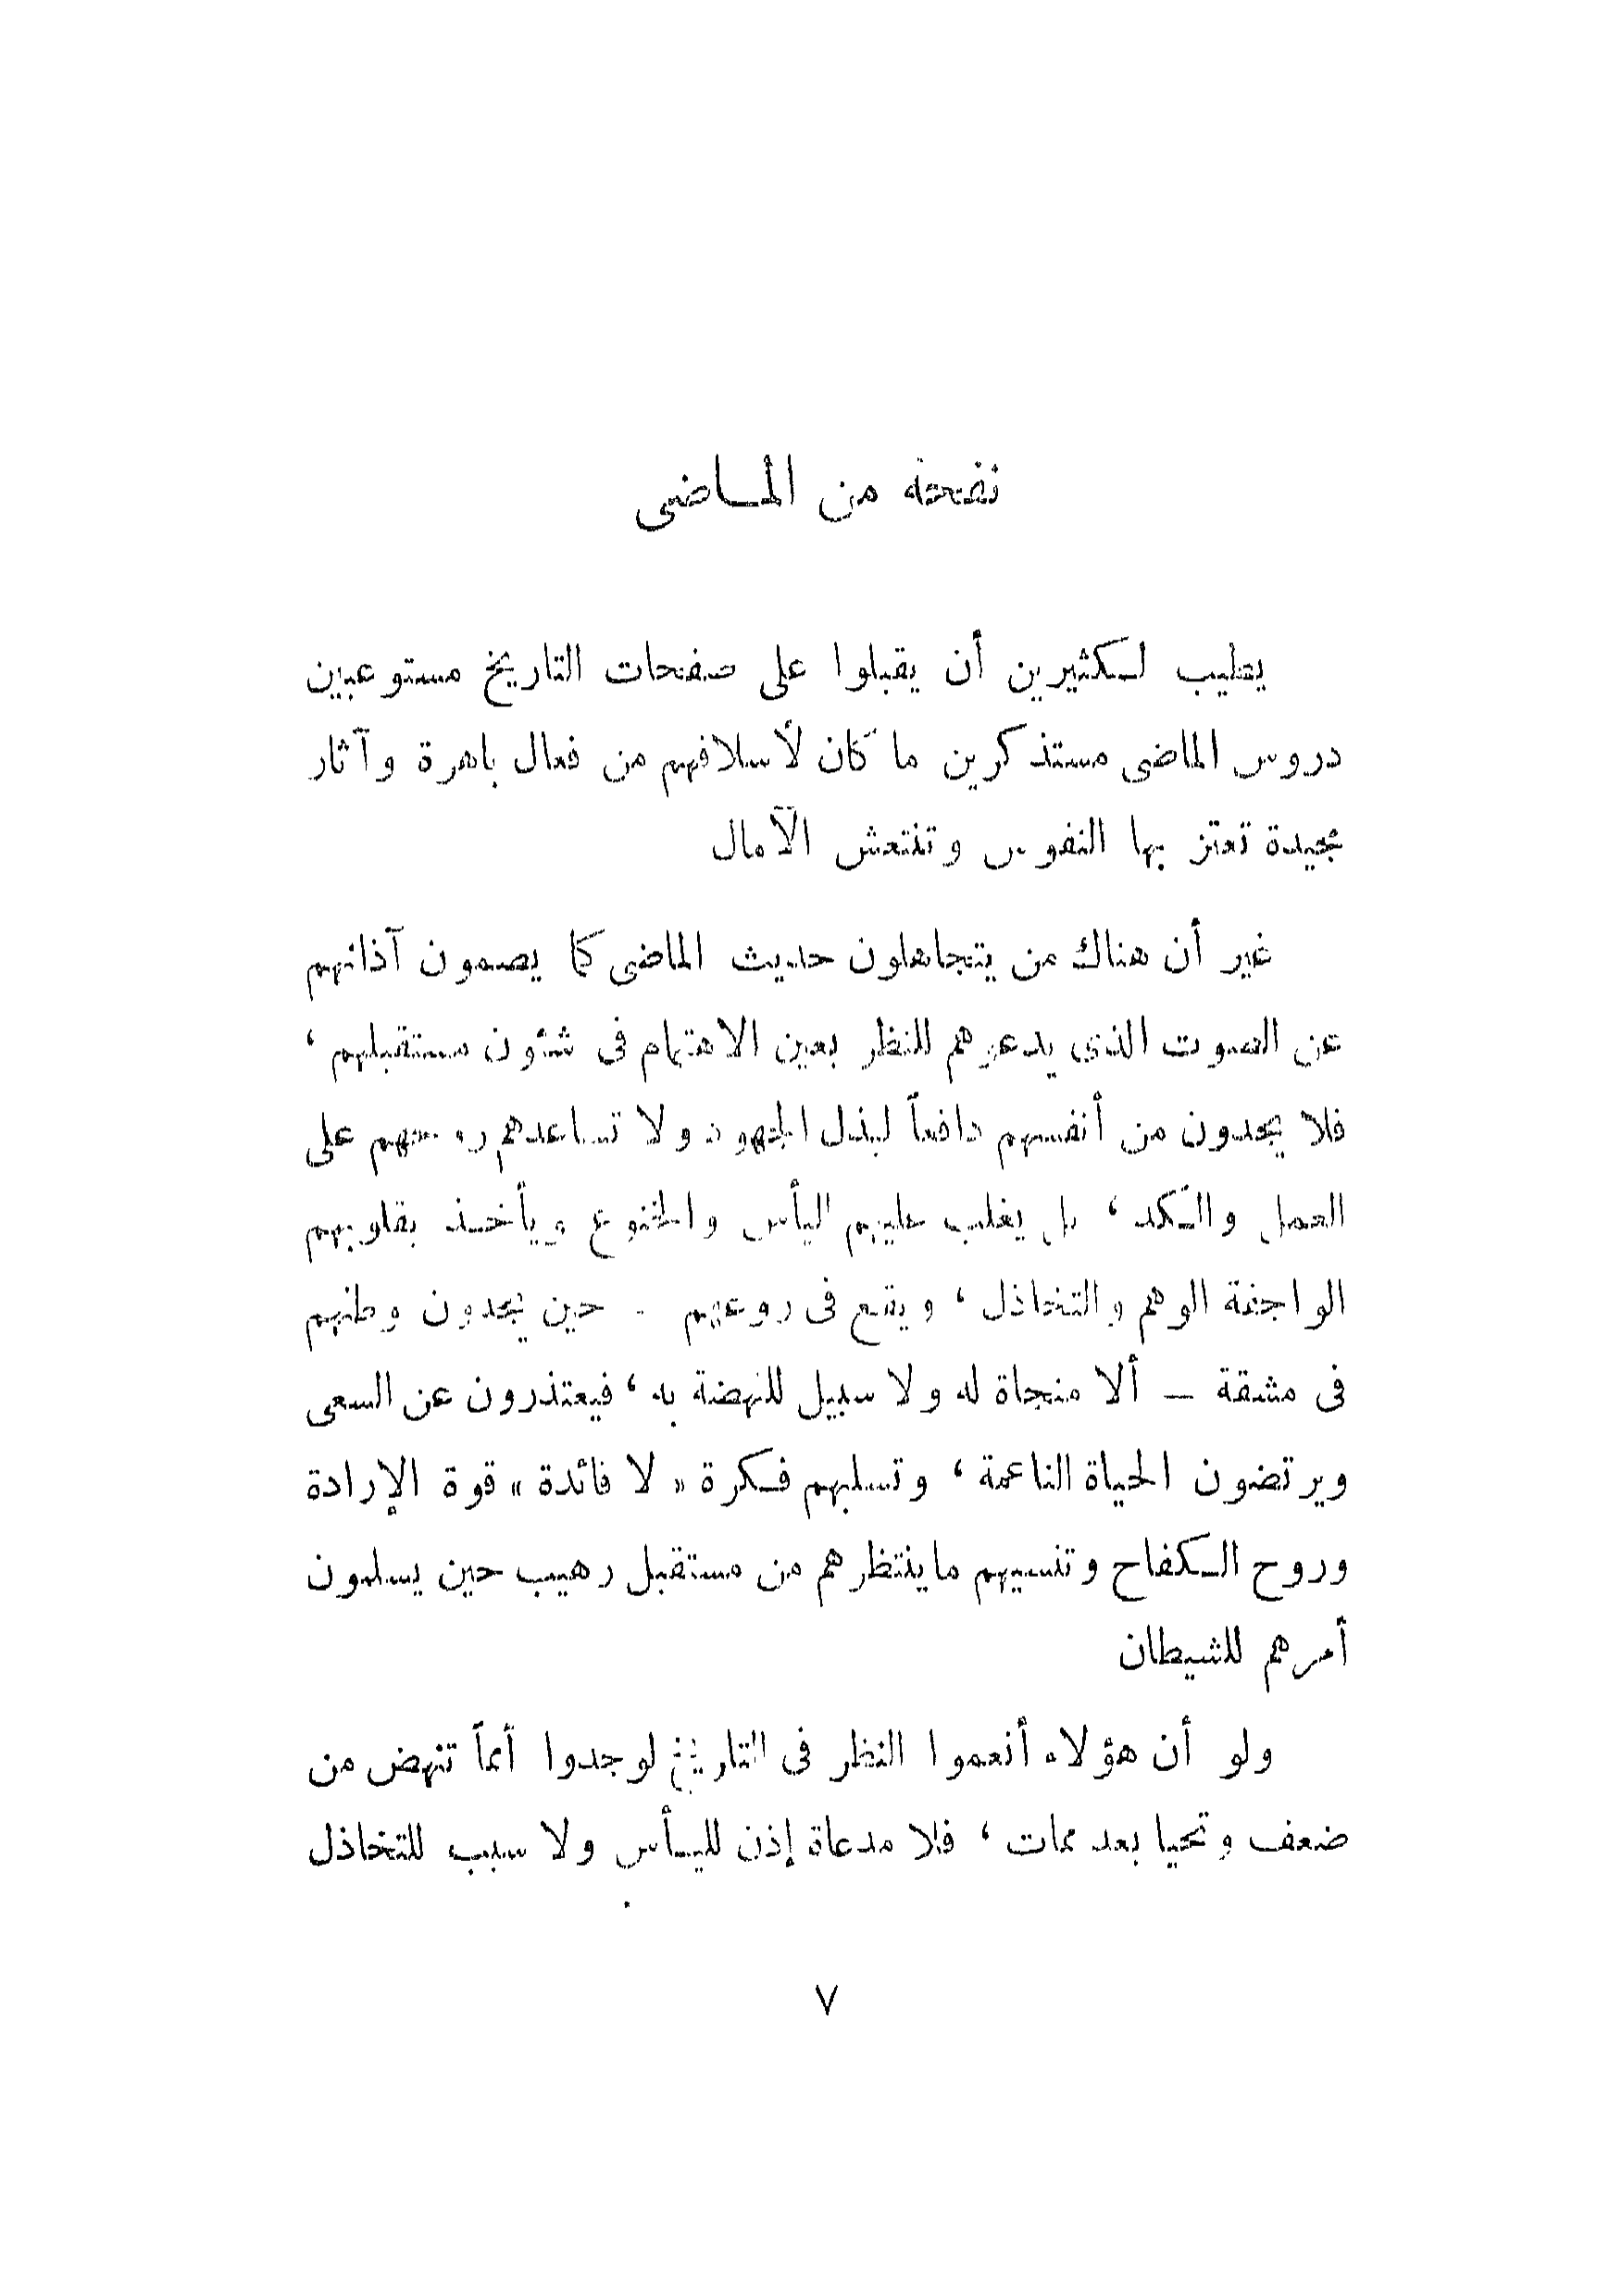 نفحة من الماضى
يطيب لكثيرين أن يقبلوا على صفحات التاريخ مستوعبين
دروس الماضى مستذكرين ما كان لأسلافهم من فعال باهرة وآثار
مجيدة تعتز بها النفوس وتنتعش الآمال
غير أن هناك من يتجاهلون حديث الماضى كما يصمون آذانهم
عن الصوت الذى يدعوهم للنظر بعين الاهتمام فى شئون مستقبلهم ،
فلا يجدون من أنفسهم دافعاً لبذل الجهود ولا تساعدهم على
العمل والكد ، بل يغلب عليهم اليأس والخنوع ويأخذ بقلوبهم
الواجفة الوهم والتخاذل ، ويقع فى روعهم - حين يجدون وطنهم
فى مشقة — ألا منجاة له ولا سبيل للنهضة به ، فيعتذرون عن السعى
ويرتضون الحياة الناعمة ، وتسلبهم فكرة « لا فائدة » قوة الإرادة
وروح الكفاح وتنسيهم ما ينتظرهم من مستقبل رهيب حين يسلمون
أمرهم للشيطان
ولو أن هؤلاء أنعموا النظر فى التاريخ لوجدوا أمماً تنهض من
ضعف وتحيا بعد ممات ، فلا مدعاة إذن لليأس ولا سبب للتخاذل
٧